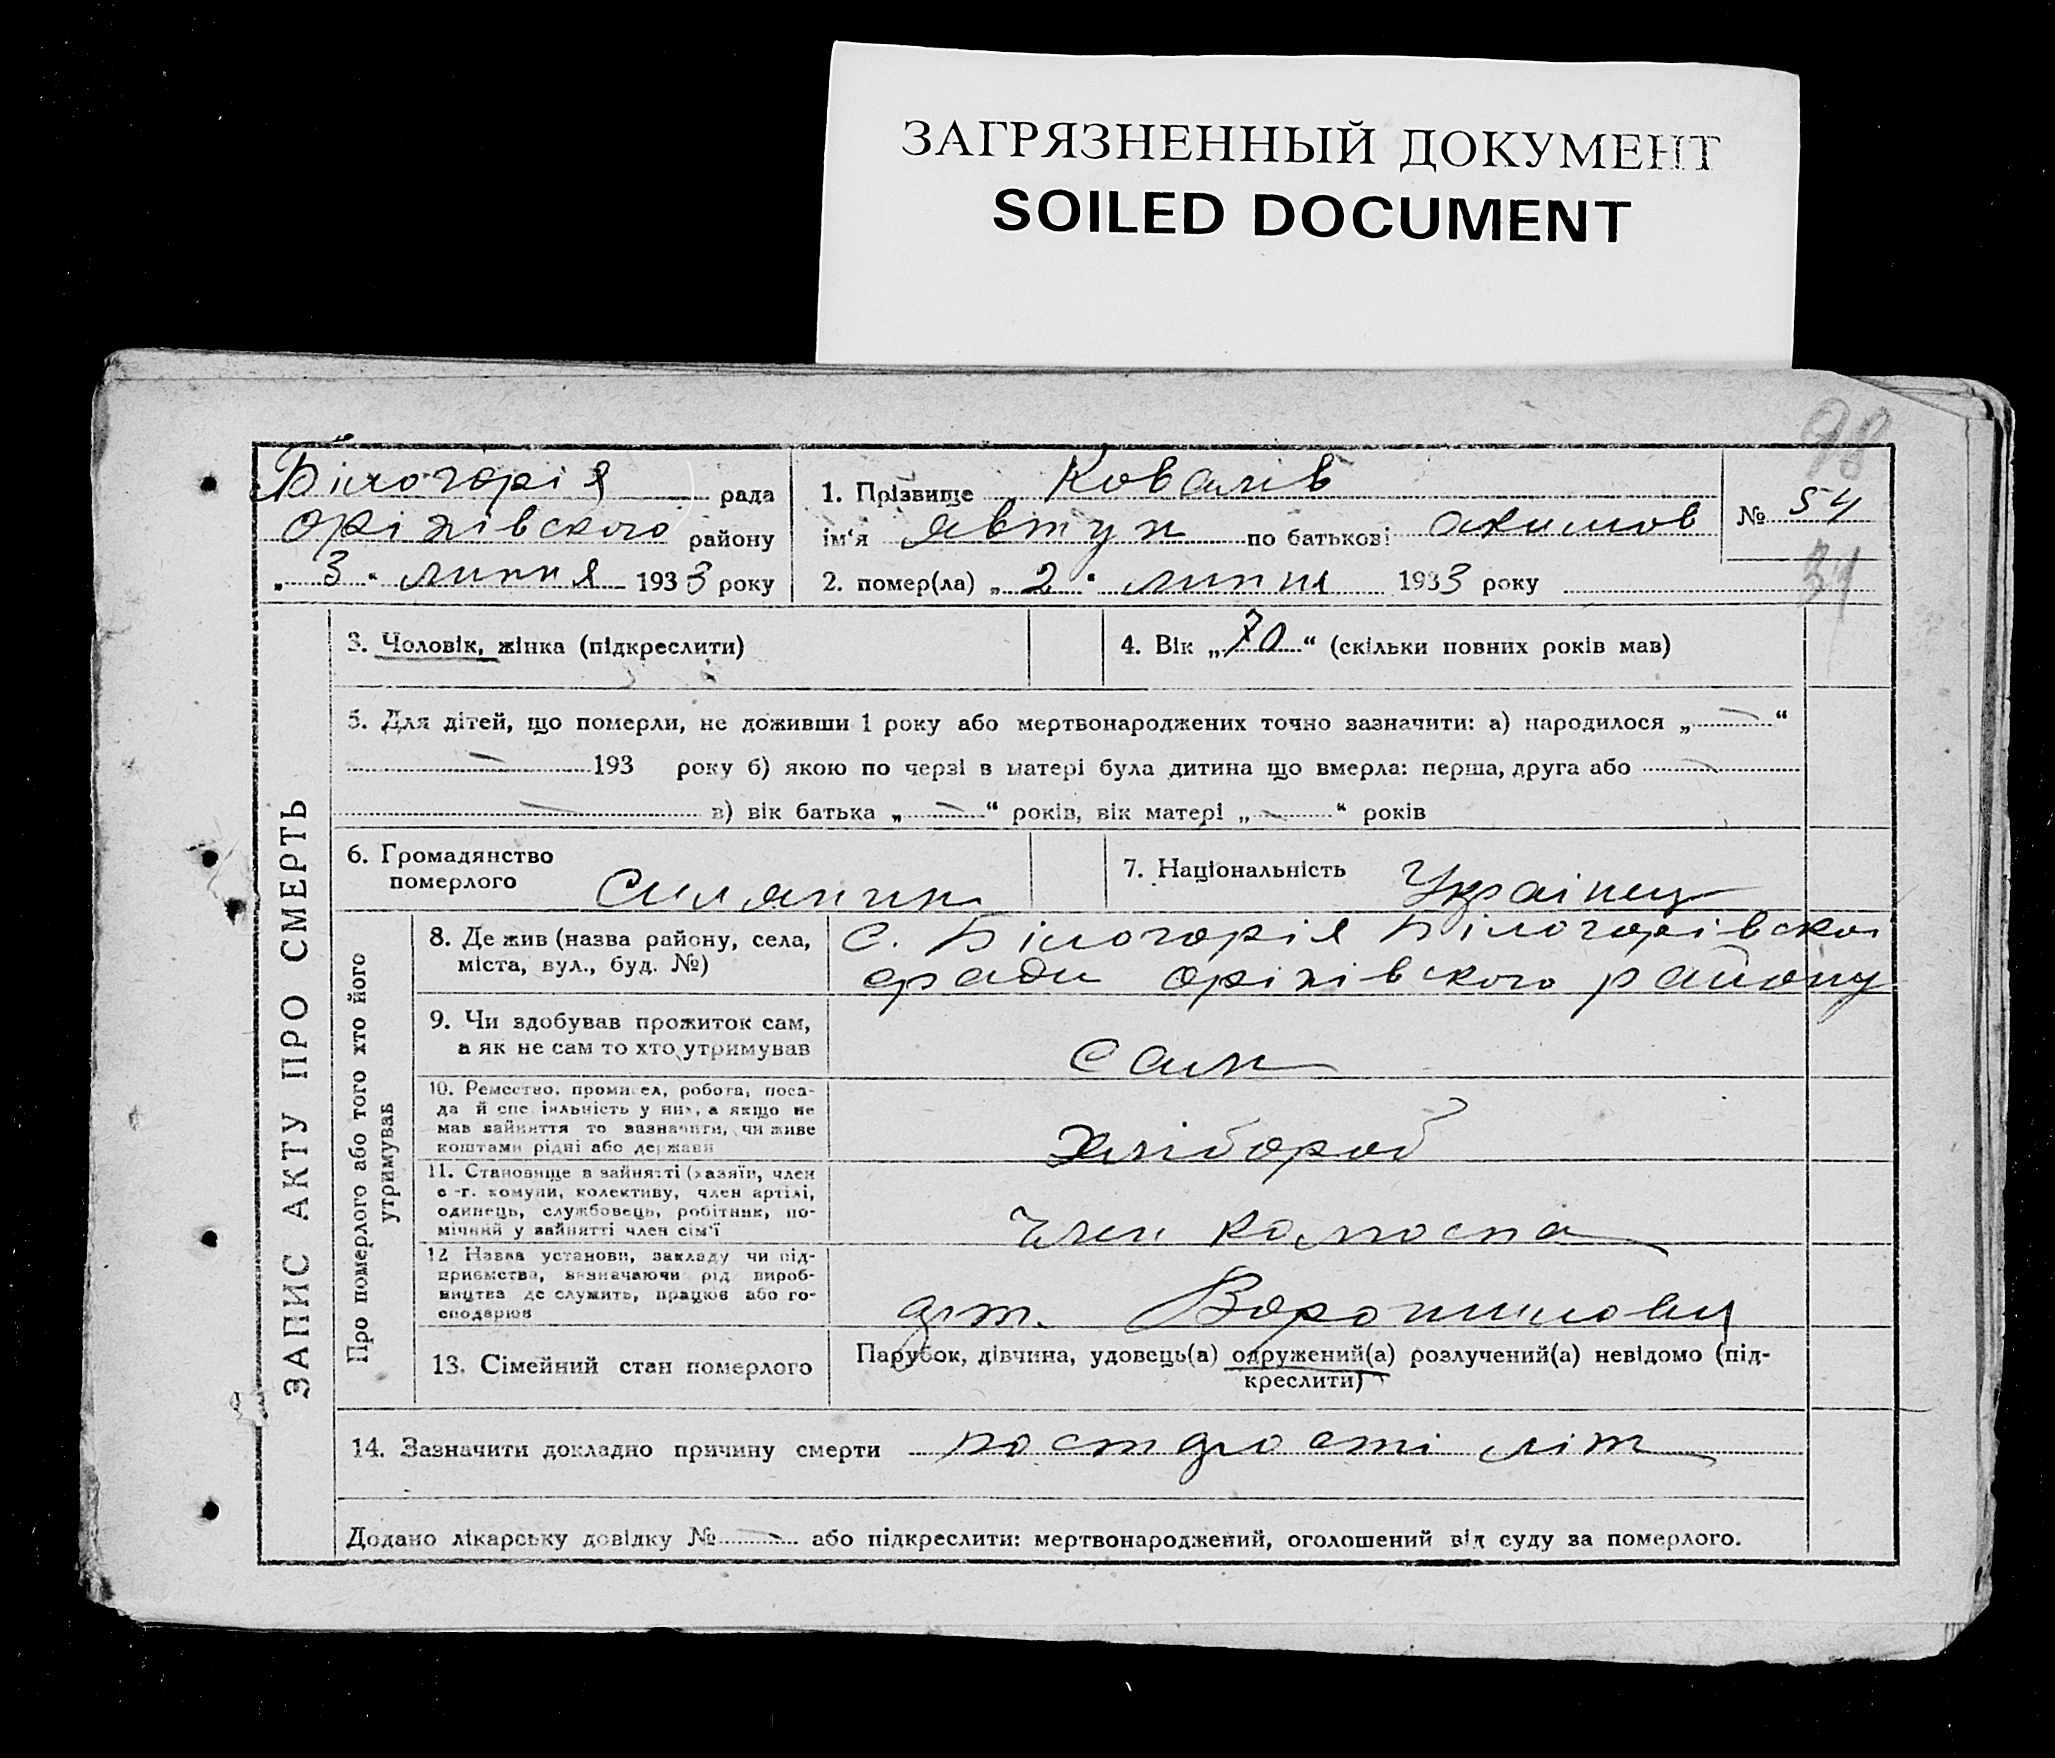 ЗАГРЯЗНЕННЫЙ ДОКУМЕНТ
SOILED DOCUMENT
98
Білогорія рада
Оріхівського району
„3“ липня 1933 року
1. Прізвище Ковалів
ім‘я Явтух по батькові Акимов
2. помер(ла) „2“ липня 1933 року
№ 54
ЗАПИС АКТУ ПРО СМЕРТЬ
3. Чоловік, жінка (підкреслити)
4. Вік „70“ (скільки повних років мав)
5. Для дітей, що померли, не доживши 1 року або мертвонароджених точно зазначити: а) народилося „—“
— 193 року б) якою по черзі в матері була дитина що вмерла: перша, друга або —
— в) вік батька „—“ років, вік матері „—“ років
6. Громадянство
померлого Силянин
7. Національність Українец
Про померлого або того хто його
утримував
8. Де жив (назва району, села,
міста, вул., буд. №)
С. Білогорія Білогорівскої
ради Оріхівского району
9. Чи здобував прожиток сам,
а як не сам то хто утримував
Сам
10. Ремество, промисел, робота, поса-
да й спеціяльність у них, а якщо не
мав зайняття то зазначити, чи живе
коштами рідні або держави
Хлібороб
11. Становище в зайнятті (хазяїн, член
с.-г. комуни, колективу, член артілі,
одинець, службовець, робітник, по-
мічний у зайнятті член сім‘ї
Член колгоспа
12 Назва установи, закладу чи під-
приємства, зазначаючи рід вироб-
ництва де служить, працює або го-
сподарює
Ворошилова
13. Сімейний стан померлого
Парубок, дівчина, удовець(а) одружений(а) розлучений(а) невідомо (під-
креслити)
14. Зазначити докладно причину смерти по старості літ
Додано лікарську довідку № — або підкреслити: мертвонароджений, оголошений від суду за померлого.